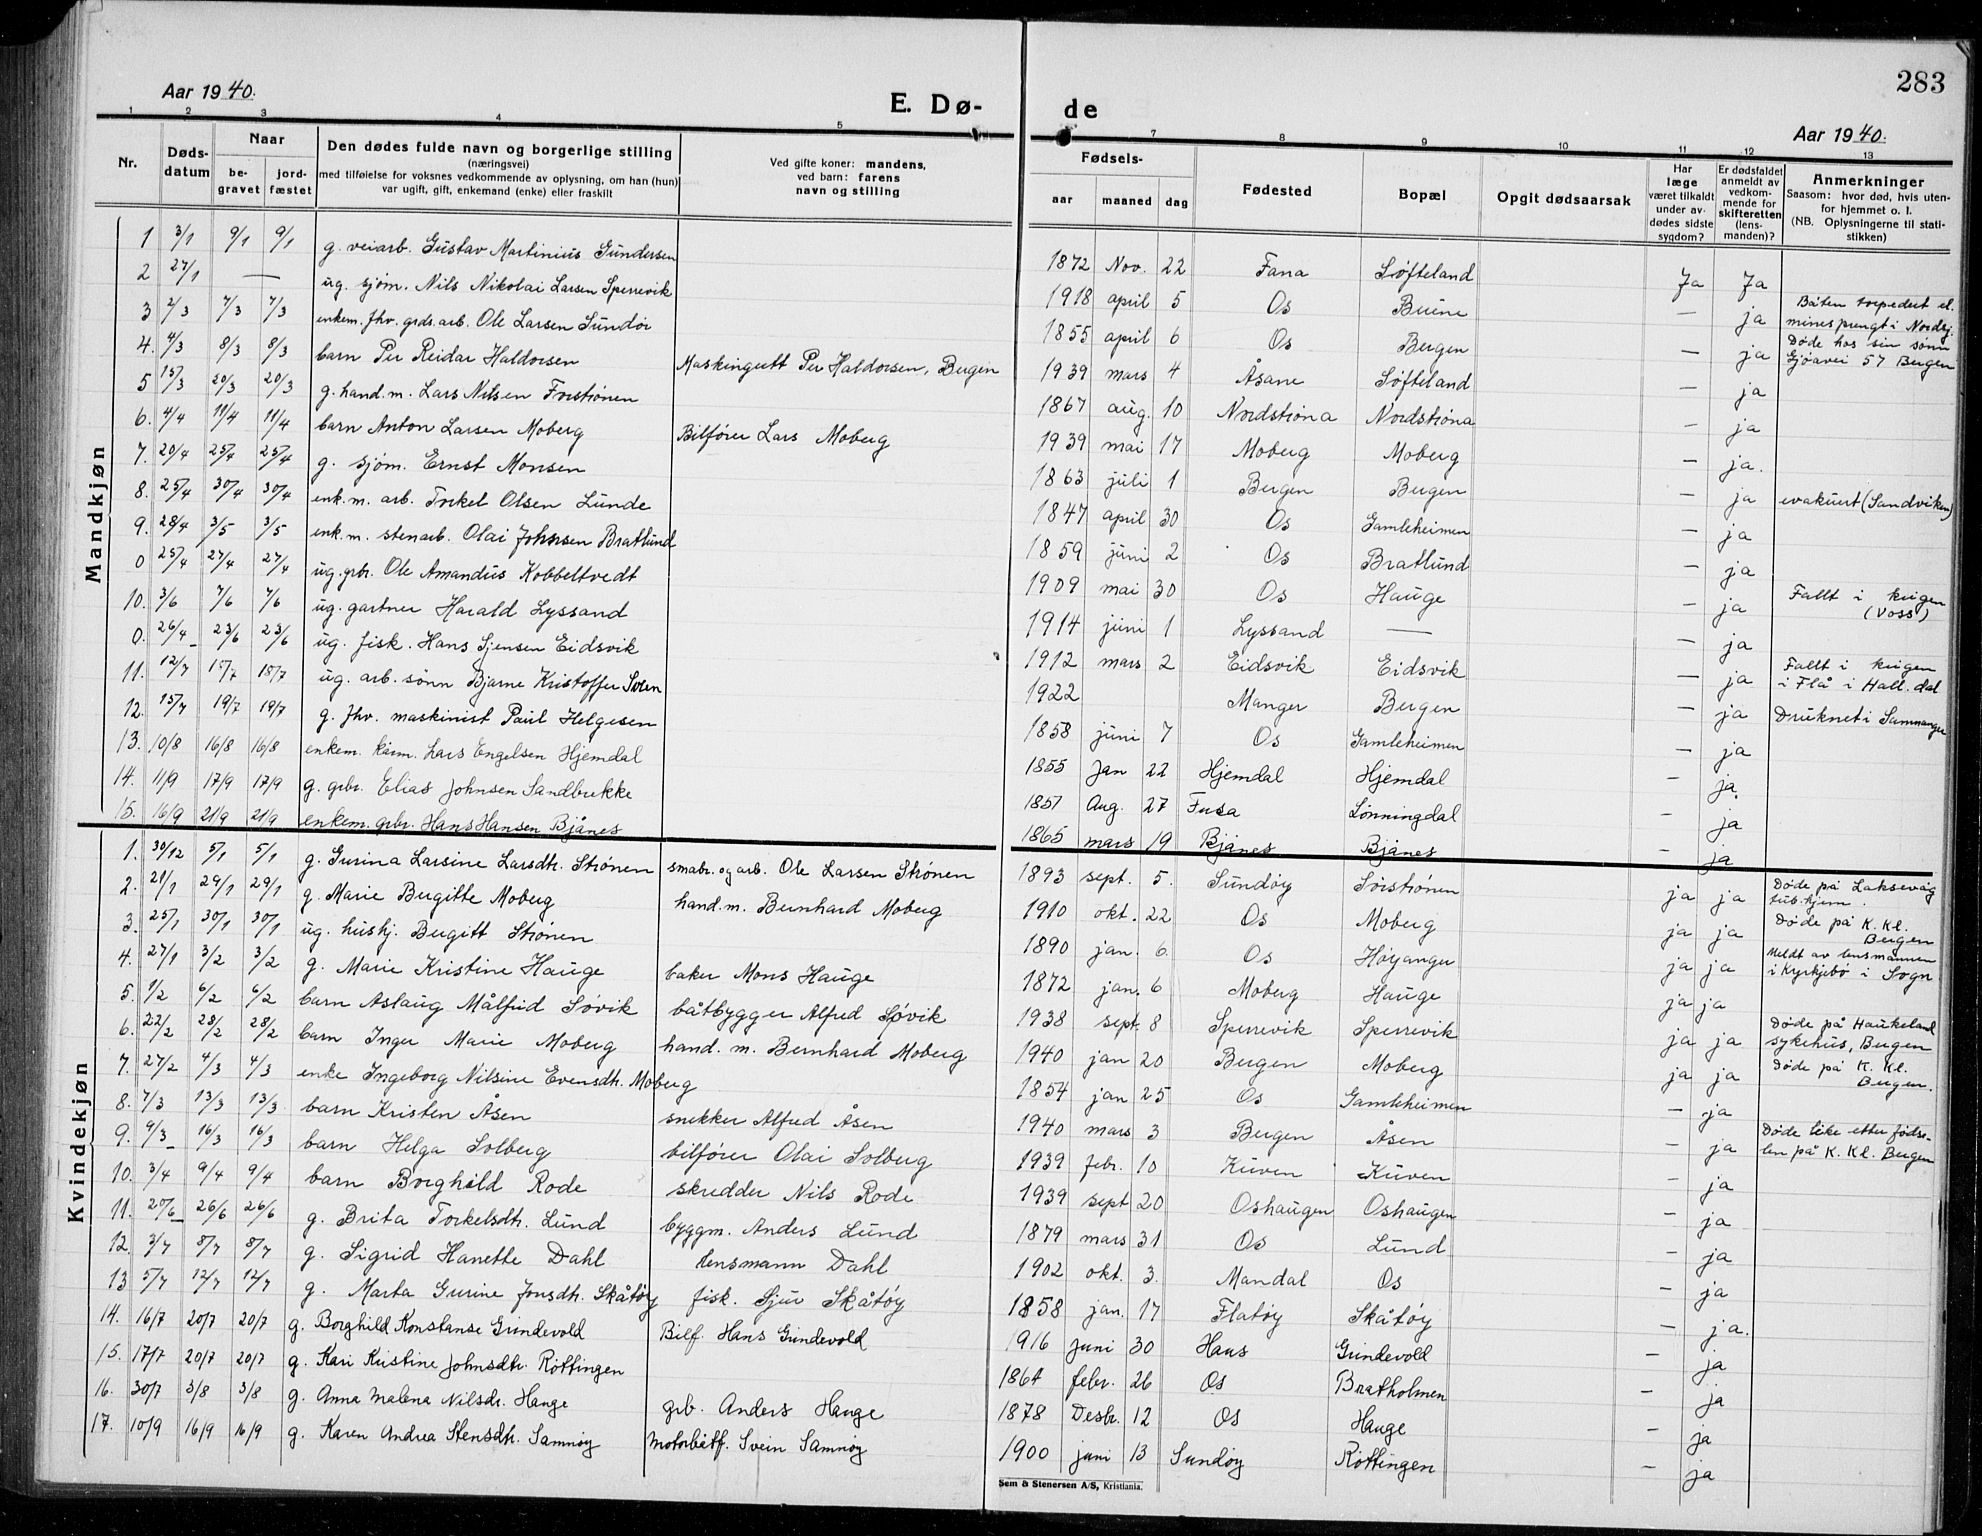 283
Aar 1940.
E. Dø-
de
Aar 1940.
1 2 3 4 5 7 8 9 10 11 12 13
Nr.
Døds-
datum
Naar
be-
gravet
jord-
fæstet
Den dødes fulde navn og borgerlige stilling
(næringsvei)
med tilføielse for voksnes vedkommende av oplysning, om han (hun)
var ugift, gift, enkemand (enke) eller fraskilt
Ved gifte koner: mandens,
ved barn: farens
navn og stilling
Fødsels-
aar maaned dag
Fødested
Bopæl
Opgit dødsaarsak
Har
læge
været tilkaldt
under av-
dødes sidste
sygdom?
Er dødsfaldet
anmeldt av
vedkom-
mende for
skifteretten
(lens-
manden)?
Anmerkninger
Saasom: hvor død, hvis uten-
for hjemmet o. l.
(NB. Oplysningerne til stati-
stikken)
Mandkjøn
1 3/1 9/1 9/1 g. veiarb. Gustav Martinius Gundersen 1872 Nov. 22 Fana Søfteland Ja Ja
2 27/1 — ug. sjøm. Nils Nikolai Larsen Sperrevik 1918 april 5 Os Buene — ja Båten torpedert el. minesprengt i Nordsj.
3 2/3 7/3 7/3 enkem. fhv. grds. arb. Ole Larsen Sundøi 1855 april 6 Os Bergen — ja Døde hos sin sønn Gjøavei 57 Bergen
4. 4/3 8/3 8/3 barn Per Reidar Haldorsen Maskingutt Per Haldorsen, Bergen 1939 mars 4 Åsane Søfteland — ja
5 15/3 20/3 20/3 g. hand.m. Lars Nilsen Forstrønen 1867 aug. 10 Nordstrøna Nordstrøna — ja
6. 4/4 11/4 11/4 barn Anton Larsen Moberg Bilfører Lars Moberg 1939 mai 17 Moberg Moberg — ja.
7. 20/4 25/4 25/4 g. sjøm. Ernst Monsen 1863 juli 1 Bergen Bergen — ja evakuert (Sandviken)
8. 25/4 30/4 30/4 enk.m. arb. Torkel Olsen Lunde 1847 april 30 Os Gamleheimen — ja
9. 28/4 3/5 3/5 enk.m. stenarb. Olai Johnsen Bratlund 1859 juni 2 Os Bratlund — ja
0 25/4 27/4 27/4 ug. grbr. Ole Amandus Kobbeltvedt 1909 mai 30 Os Hauge — ja Fallt i krigen (Voss)
10. 3/6 7/6 7/6 ug. gartner Harald Lyssand 1914 juni 1 Lyssand — — ja
0. 26/4 23/6 23/6 ug. fisk. Hans Sjensen Eidsvik 1912 mars 2 Eidsvik Eidsvik — ja Fallt i krigen i Flå i Hall.dal
11. 12/7 15/7 15/7 ug. arb. sønn Bjarne Kristoffer Soten 1922 Manger Bergen — ja Druknet i Samnanger
12. 15/7 19/7 19/7 g. fhv. maskinist Paul Helgesen 1858 juni 7 Os Gamleheimen — ja
13. 10/8 16/8 16/8 enkem. kårm. Lars Engelsen Hjemdal 1855 Jan 22 Hjemdal Hjemdal — ja.
14. 11/9 17/9 17/9 g. grbr. Elias Johnsen Sandbrekke 1857 Aug. 27 Fusa Lönningdal ja
15. 16/9 21/9 21/9 enkem. grbr. Hans Hansen Bjånes 1865 mars 19 Bjånes Bjånes — ja
Kvindekjøn
1. 30/12 5/1 5/1 g. Gurina Larsine Larsdtr. Strönen smabr. og arb. Ole Larsen Strönen 1893 sept. 5. Sundøy Sørströnen ja ja Døde på Laksevåg tub.hjem.
2. 21/1 29/1 29/1 g. Marie Bergitte Moberg hand.m. Bernhard Moberg 1910 okt. 22 Os Moberg ja ja Døde på K. Kl. Bergen
3. 25/1 30/1 30/1 ug. hushj. Bergitt Strönen 1890 jan. 6. Os Høyanger ja ja Meldt av lensmannen i Kyrkjebö i Sogn
4. 27/1 3/2 3/2 g. Marie Kristine Hauge baker Mons Hauge 1872 jan. 6 Moberg Hauge ja ja
5. 1/2 6/2 6/2 barn Aslaug Målfrid Søvik båtbygger Alfred Søvik 1938 sept. 8 Sperrevik Sperrevik ja ja Døde på Haukeland sykehus, Bergen
6. 22/2 28/2 28/2 barn Inger Marie Moberg hand. m. Bernhard Moberg 1940 jan 20 Bergen Moberg ja ja Døde på K. Kl. Bergen.
7. 27/2 4/3 4/3 enke Ingeborg Nilsine Evensdtr. Moberg 1854 jan 25 Os Gamleheimen — ja
8. 7/3 13/3 13/3 barn Kristen Åsen snekker Alfred Åsen 1940 mars 3 Bergen Åsen — ja Døde like etter födse- len på K. Kl. Bergen
9. 9/3 16/3 16/3 barn Helga Solberg bilfører Olai Solberg 1939 febr. 10 Kuven Kuven ja
10. 3/4 9/4 9/4 barn Borghild Rode skredder Nils Rode 1939 sept 20 Oshaugen Oshaugen — ja
11. 20/6 26/6 26/6 g. Brita Torkelsdtr. Lund byggm. Anders Lund 1879 mars 31 Os Lund — ja
12. 3/7 8/7 8/7 g. Sigrid Hanette Dahl lensmann Dahl 1902 okt. 3. Mandal Os — ja
13 5/7 12/7 12/7 g. Marta Gurine Jonsdtr. Skåtøy fisk. Sjur Skåtøy 1858 jan. 17 Flatøy Skåtøy — ja.
14. 16/7 20/7 20/7 g. Borghild Konstanse Grindevold Bilf. Hans Grindevold 1916 juni 30 Haus Grindevold — ja
15. 17/7 20/7 20/7 g. Kari Kristine Johnsdtr. Röttingen 1864 febr. 26 Os Bratholmen — ja
16. 30/7 3/8 3/8 g. Anna Malena Nilsdr. Hauge grb. Anders Hauge 1878 Desbr. 12 Os Hauge — ja
17. 10/9 16/9 16/9 g. Karen Andrea Stensdtr. Samnøy Motorbåtf. Svein Samnøy 1900 juni 13 Sundøy Röttingen — ja
Sem & Stenersen A/S, Kristiania.